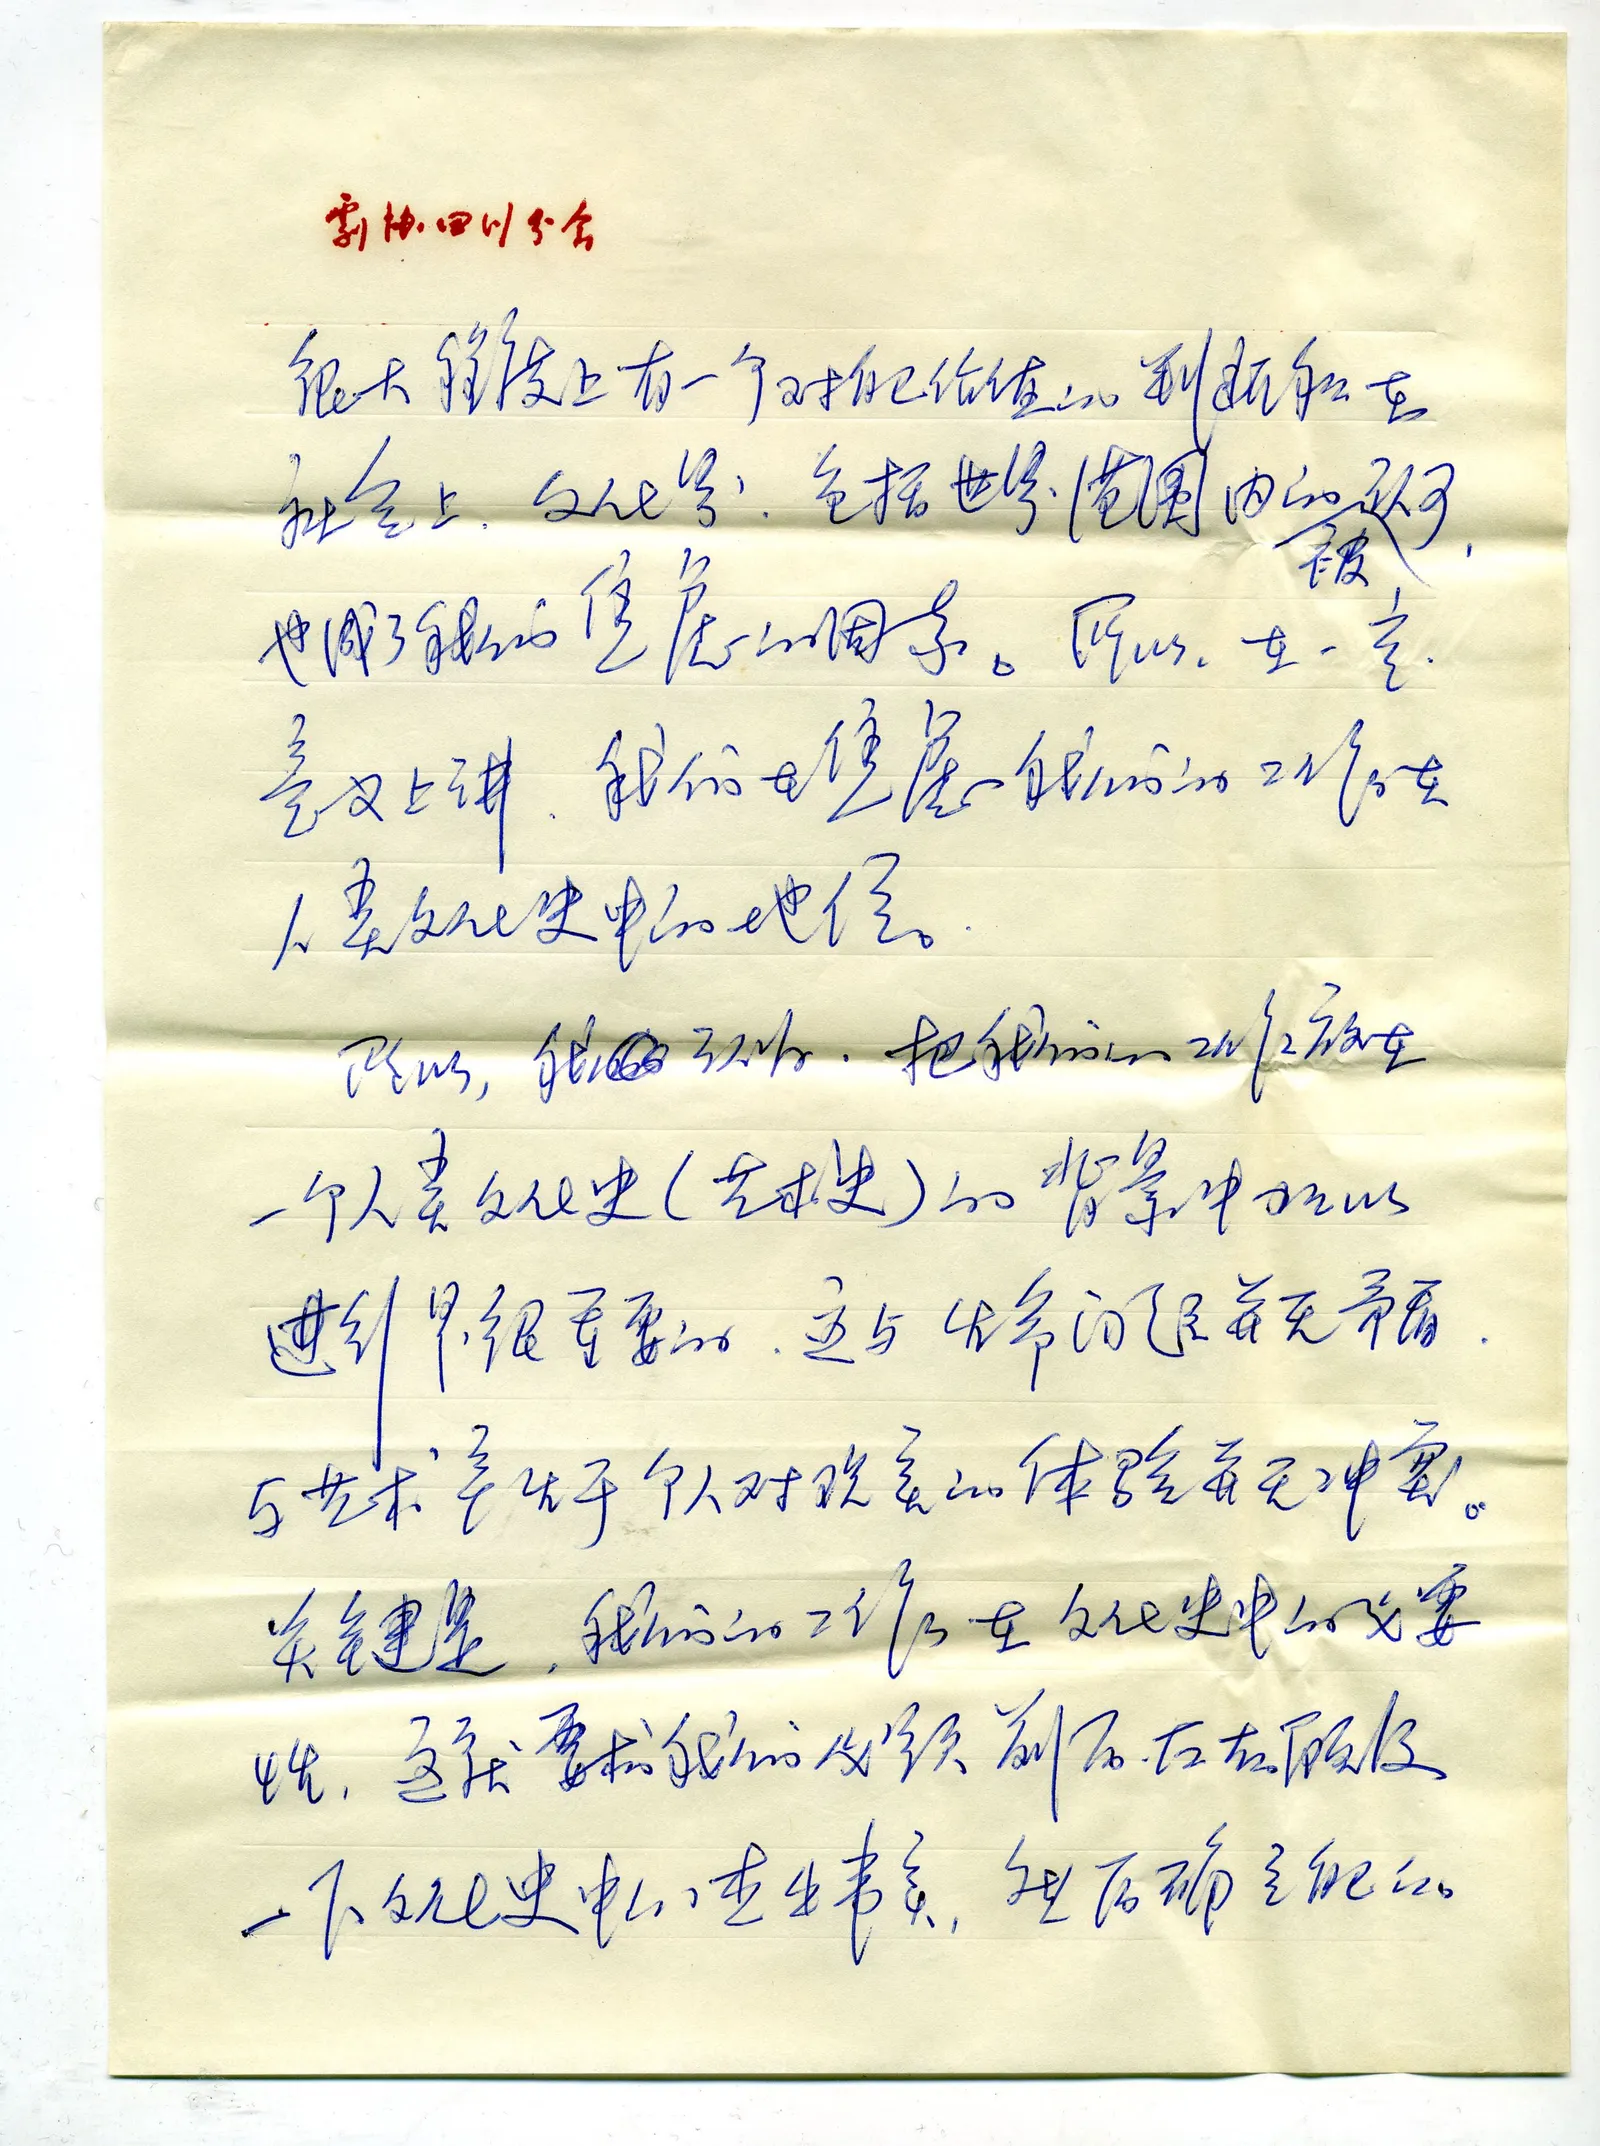 剧协四川分会
很大程度上有一个对自己价值的判断和在
社会上、文化界、包括世界范围内的认可，
不被
也成了我们的焦虑的因素。所以，在一定
意义上讲，我们在焦虑我们的工作在
人类文化史中的地位。
所以，我认为，把我们的工作放在
一个人类文化史（艺术史）的背景中加以
进行是很重要的，这与生命问题并无矛盾，
与艺术产生于个人对现实的体验并无冲突。
关键是，我们的工作在文化史中的必要
性，这就要求我们必须前后左右顾及
一下文化史中的这些事实，然后确立自己的